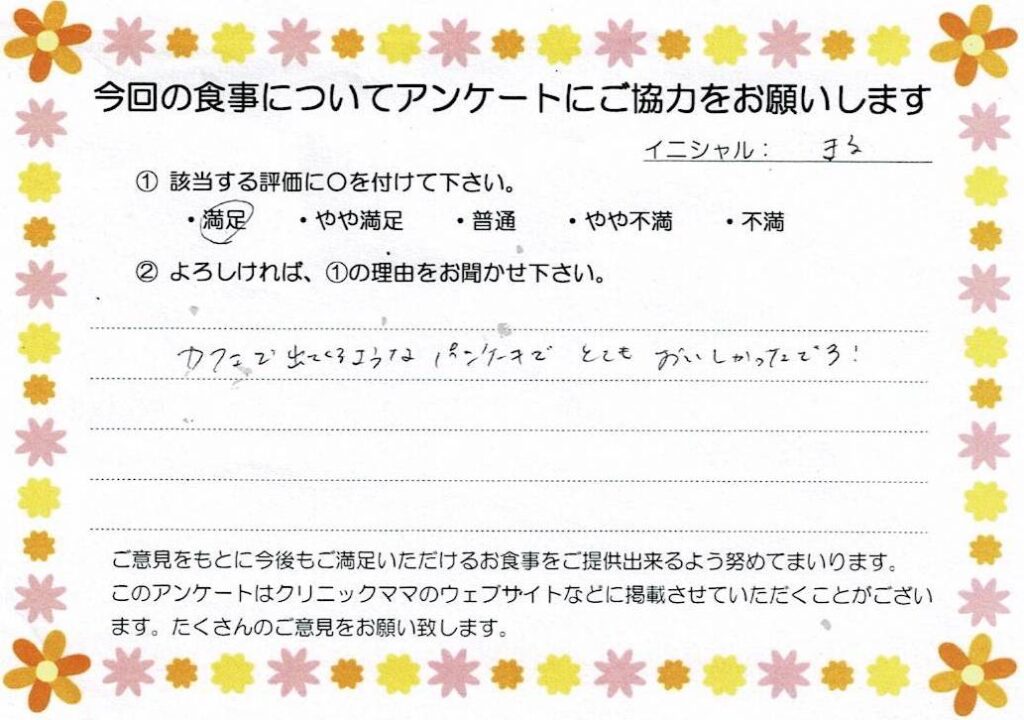 今回の食事についてアンケートにご協力をお願いします
イニシャル：
① 該当する評価に〇を付けて下さい。
・満足 ・やや満足 ・普通 ・やや不満 ・不満
② よろしければ、①の理由をお聞かせ下さい。
カフェで出てくるような パンケーキで とても おいしかったです!
ご意見をもとに今後もご満足いただけるお食事をご提供出来るよう努めてまいります。
このアンケートはクリニックママのウェブサイトなどに掲載させていただくことがござい
ます。たくさんのご意見をお願い致します。